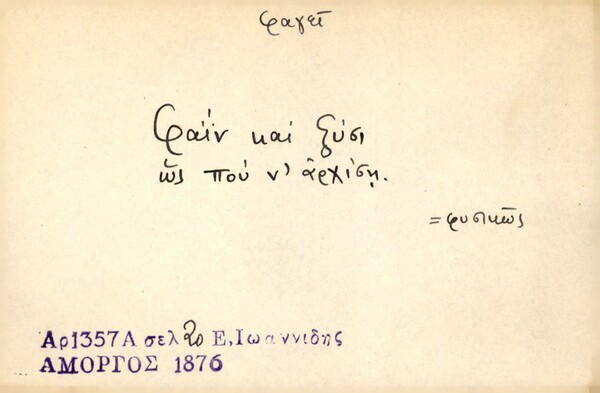 φαγεῖ
Φαΐν καὶ ξύσι
ὥς ποὺ ν' ἀρχίσῃ.
= φυσικῶς
Αρ1357Α σελ 20 Ε,Ιωαννιδης
ΑΜΟΡΓΟΣ 1876